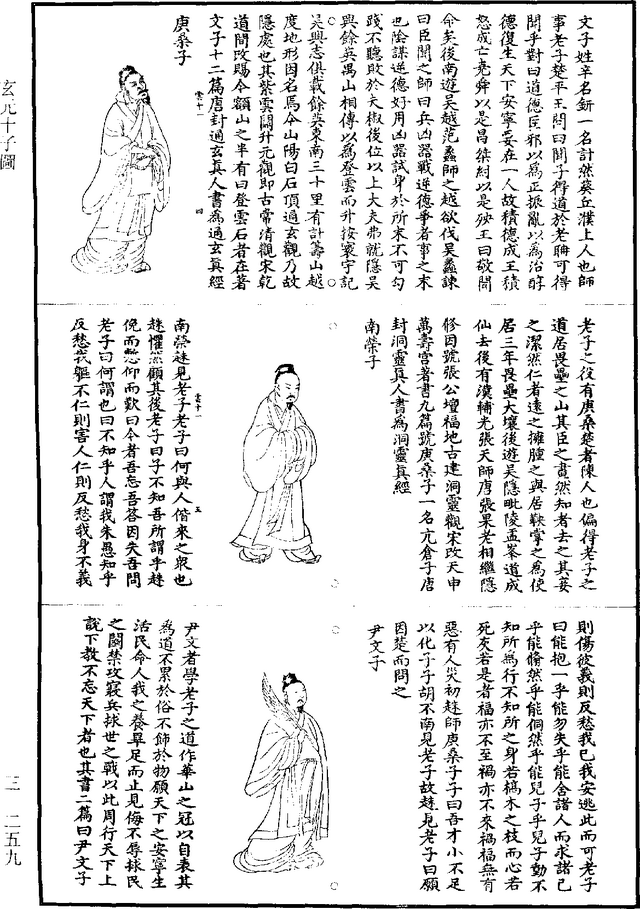 玄元十子圖
文子姓辛名鈃一名計然葵丘濮上人也師
事老子楚平王問曰聞子得道於老聃可得
聞乎對曰道德匡邪以為正振亂以為治醇
德復生天下安寧要在一人故積德成王積
怨成亡堯舜以是昌桀紂以是殃王曰敬聞
命矣後南遊吳越范蠡師之越欲伐吳蠡諫
曰臣聞之師曰兵凶器戰逆德爭者事之末
也陰謀逆德好用凶器試身於所末不可勾
踐不聽敗於夫椒後位以上大夫弗就隱吳
興餘英禺山相傳以為登雲而升按寰宇記
吳興志俱載餘英東南三十里有計籌山越
度地形因名焉今山陽白石頂通玄觀乃故
隱處也其紫雲關升元觀即古常清觀宋乾
道間改賜今額山之半有曰登雲石者在著
文子十二篇唐封通玄真人書為通玄真經
雲十一 四
庚桑子
老子之役有庚桑楚者陳人也偏得老子之
道居畏壘之山其臣之畫然知者去之其妾
之潔然仁者遠之擁腫之與居鞅掌之為使
居三年畏壘大壤後遊吳隱毗陵孟峯道成
仙去後有漢輔光張天師唐張果老相繼隱
修因號張公壇福地古建洞靈觀宋改天申
萬壽宮著書九篇號庚桑子一名亢倉子唐
封洞靈真人書為洞靈真經
南榮子
雲十一 五
南榮趎見老子老子曰何與人偕來之眾也
趎懼然顧其後老子曰子不知吾所謂乎趎
俛而慙仰而歎曰今者吾忘吾答因失吾問
老子曰何謂也曰不知乎人謂我朱愚知乎
反愁我軀不仁則害人仁則反愁我身不義
則傷彼義則反愁我已我安逃此而可老子
曰能抱一乎能勿失乎能舍諸人而求諸己
乎能翛然乎能侗然乎能兒子乎兒子動不
知所為行不知所之身若槁木之枝而心若
死灰若是者福亦不至禍亦不來禍福無有
惡有人災初趎師庚桑子子曰吾才小不足
以化子子胡不南見老子故趎見老子曰願
因楚而問之
尹文子
尹文者學老子之道作華山之冠以自表其
為道不累於俗不飾於物願天下之安寧生
活民命人我之養畢足而止見侮不辱捄民
之鬪禁攻寢兵捄世之戰以此周行天下上
說下教不忘天下者也其書二篇曰尹文子
三 二五九